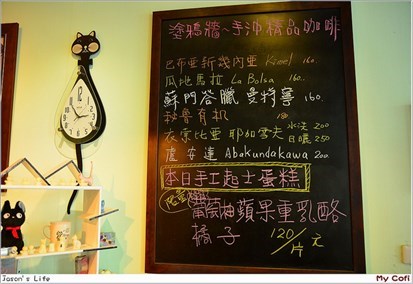 塗鴉牆、手沖精品咖啡
巴布亞新幾內亞 Kimel 160.
瓜地馬拉 La Bolsa 160.
蘇門答臘 曼特寧 160.
秘魯有机 180
衣索比亞 耶加雪夫 水洗 200
日曬 250
盧安達 Abakundakawa 200.
本日手工起士蛋糕
葡萄柚蘋果重乳酪
橘子 120/片 元
Jason's Life
My Cofi